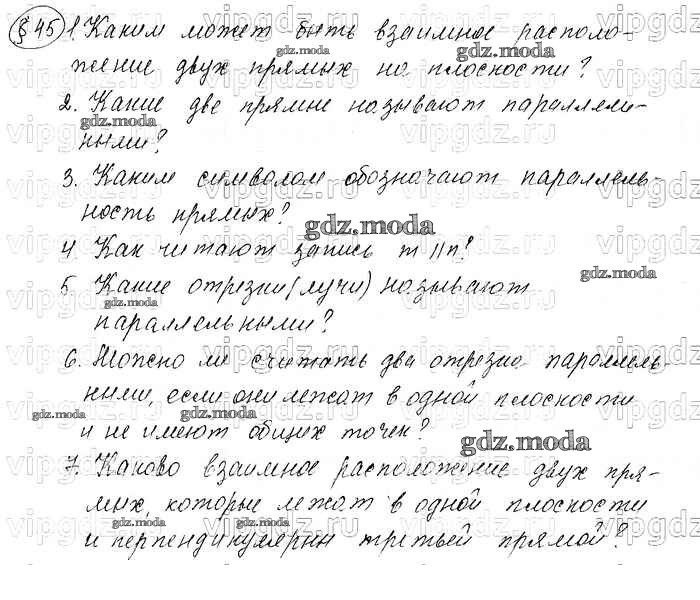 §45 1. Каким может быть взаимное располо-
жение двух прямых на плоскости?
2. Какие две прямые называют параллель-
ными?
3. Каким символом обозначают параллель-
ность прямых?
4 Как читают запись m||n?
5. Какие отрезки (лучи) называют
параллельными?
6. Можно ли считать два отрезка параллель-
ными, если они лежат в одной плоскости
и не имеют общих точек?
7. Каково взаимное расположение двух пря-
мых, которые лежат в одной плоскости
и перпендикулярны третьей прямой?
gdz.moda
vipgdz.ru